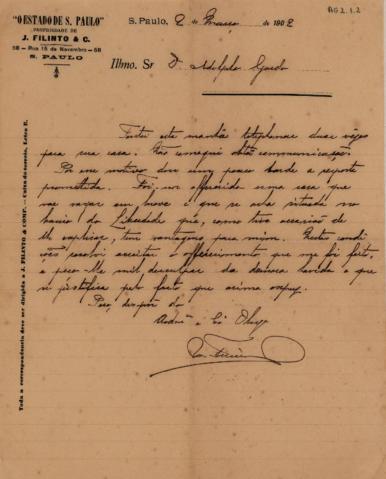 "O ESTADO DE S. PAULO"
PROPRIEDADE DE
J. FILINTO & C.
58 - Rua 15 de Novembro - 58
S. PAULO
AG 2.1.2
S. Paulo, 2 de Março de 1902
Illmo. Sr Dr Adolpho Gordo
Tentei esta manhã telephonar duas vezes
para sua casa. Não consegui obter communicação.
Por esse motivo dou um pouco tarde a resposta
promettida. Foi-me offerecida uma casa que
vae vagar em breve e que se acha situada no
bairro da Liberdade que, como tive occasião de
lhe explicar, tem vantagens para mim. Nestas condi-
ções resolvi acceitar o offerecimento que me foi feito,
e peço-lhe mil desculpas da demora havida e que
se justifica pelo facto que acima
Peço, dispor do
Toda a correspondencia deve ser dirigida a J. FILINTO & COMP. - Caixa do correio, Letra E.